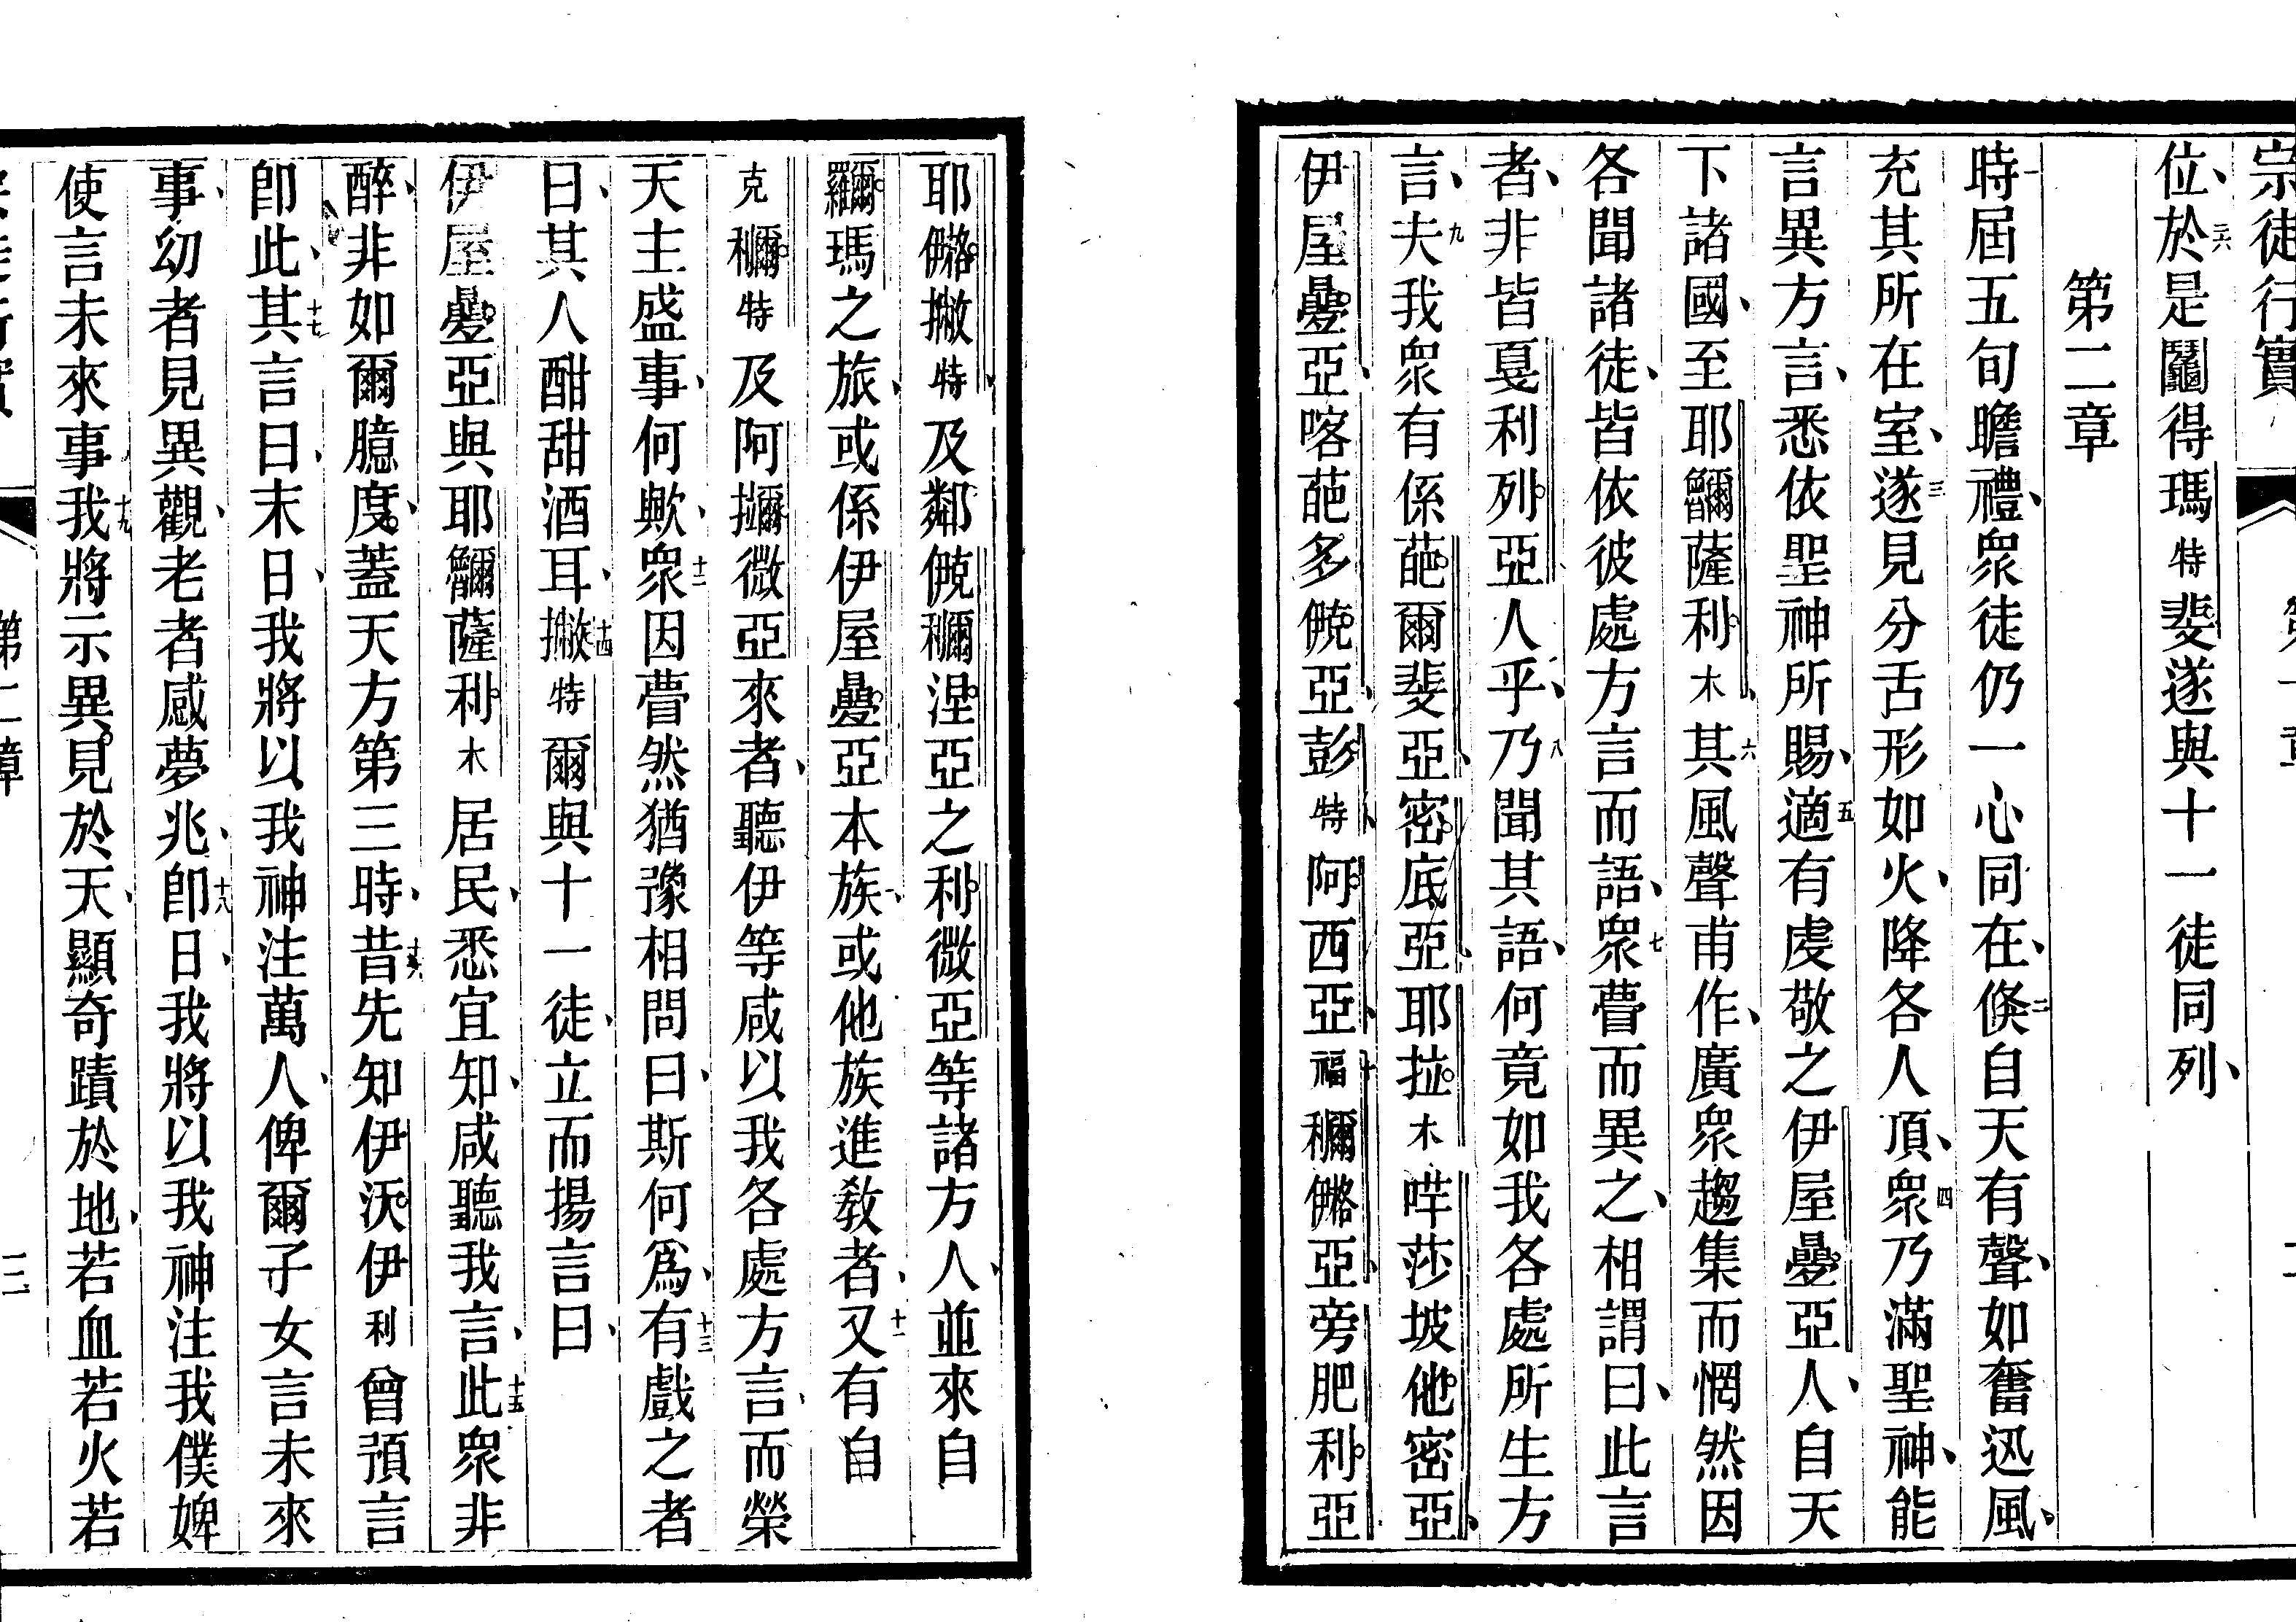 宗徒行實
位、於二六是鬮得瑪特斐遂與十一徒同列、
第二章
時一屆五旬瞻禮、衆徒仍一心同在、倏二自天有聲、如奮迅風、
充其所在室、遂三見分舌形如火、降各人頂、衆四乃滿聖神、能
言異方言、悉依聖神所賜、適五有虔敬之伊屋疊亞人、自天
下諸國、至耶薩利木、其六風聲甫作、廣衆趨集而惘然因
各聞諸徒、皆依彼處方言而語、衆七瞢而異之、相謂曰、此言
者、非皆戛利列亞人乎、乃八聞其語、何竟如我各處所生方
言、夫九我衆有係葩爾斐亞、密底亞、耶拉木、哶莎坡他密亞、
伊屋疊亞、喀葩多亞、彭特、阿西亞、福十亞、旁肥利亞
耶特、及鄰涅亞之利微亞等諸方人、並來自
瑪之旅、或係伊屋疊亞本族、或他族進教者、又十一有自
克特及阿微亞來者、聽伊等咸以我各處方言、而榮
天主盛事、何歟、衆十二因瞢然猶豫相問曰、斯何爲、有十三戲之者
曰、其人酣甜酒耳、十四特爾與十一徒、立而揚言曰、
伊屋疊亞與耶薩利木居民、悉宜知、咸聽我言、此十五衆非
醉、非如爾臆度、蓋天方第三時、昔十六先知伊沃伊利曾預言
卽此、其十七言曰、末日、我將以我神注萬人、俾爾子女言未來
事、幼者見異觀、老者感夢兆、卽十八日、我將以我神注我僕婢
使言未來事、我十九將示異見於天、顯奇蹟於地、若血若火若
第二章
三